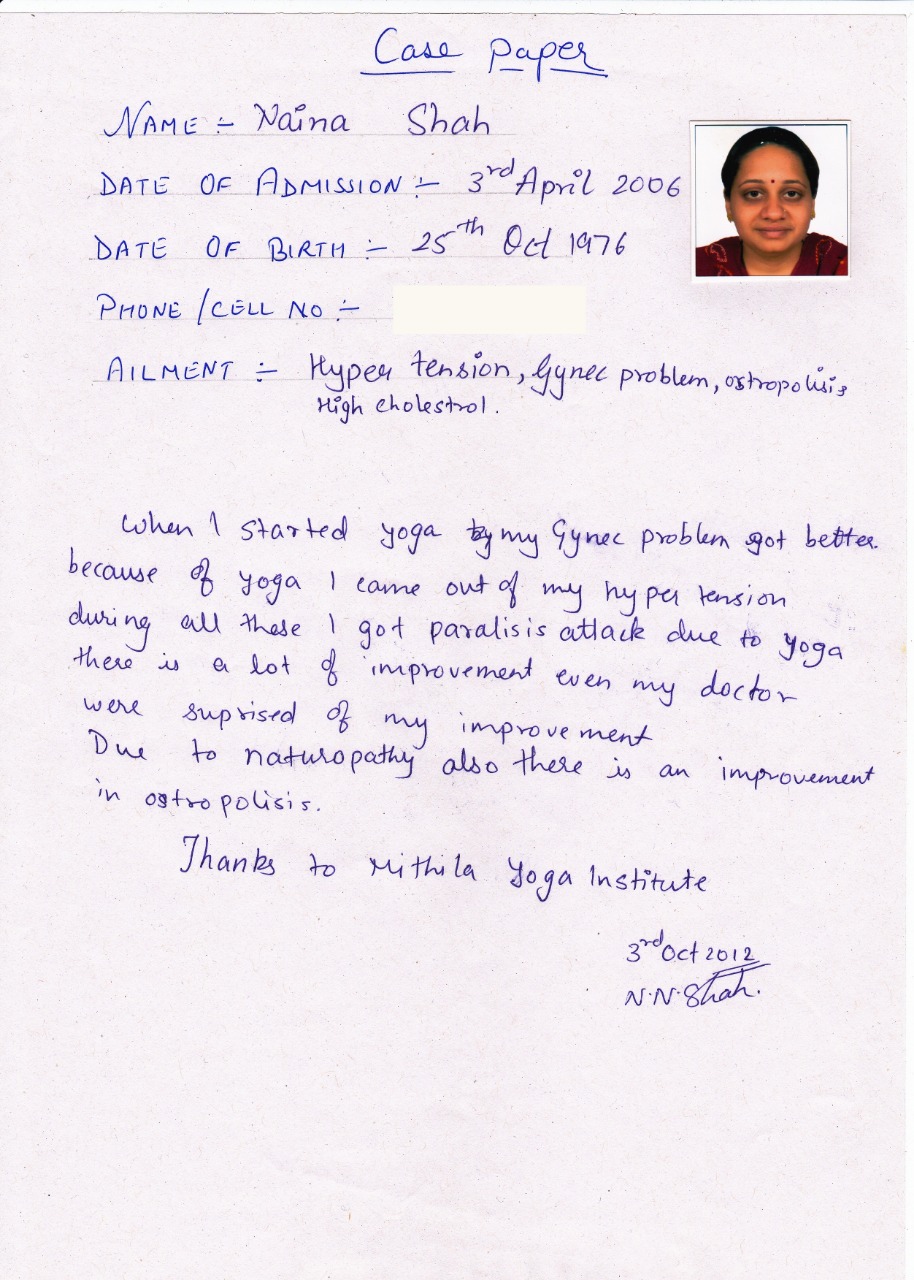 Case Paper
NAME :- Naina Shah
DATE OF ADMISSION :- 3rd April 2006
DATE OF BIRTH :- 25th Oct 1976
PHONE / CELL NO :-
AILMENT :- Hyper tension, Gynec problem, ostropolisis
High cholestrol.
When I started yoga my Gynec problem got better.
because of yoga I came out of my hyper tension
during all these I got paralisis attack due to yoga
there is a lot of improvement even my doctor
were suprised of my improvement
Due to naturopathy also there is an improvement
in ostropolisis.
Thanks to Mithila Yoga Institute
3rd Oct 2012
N.N.Shah.